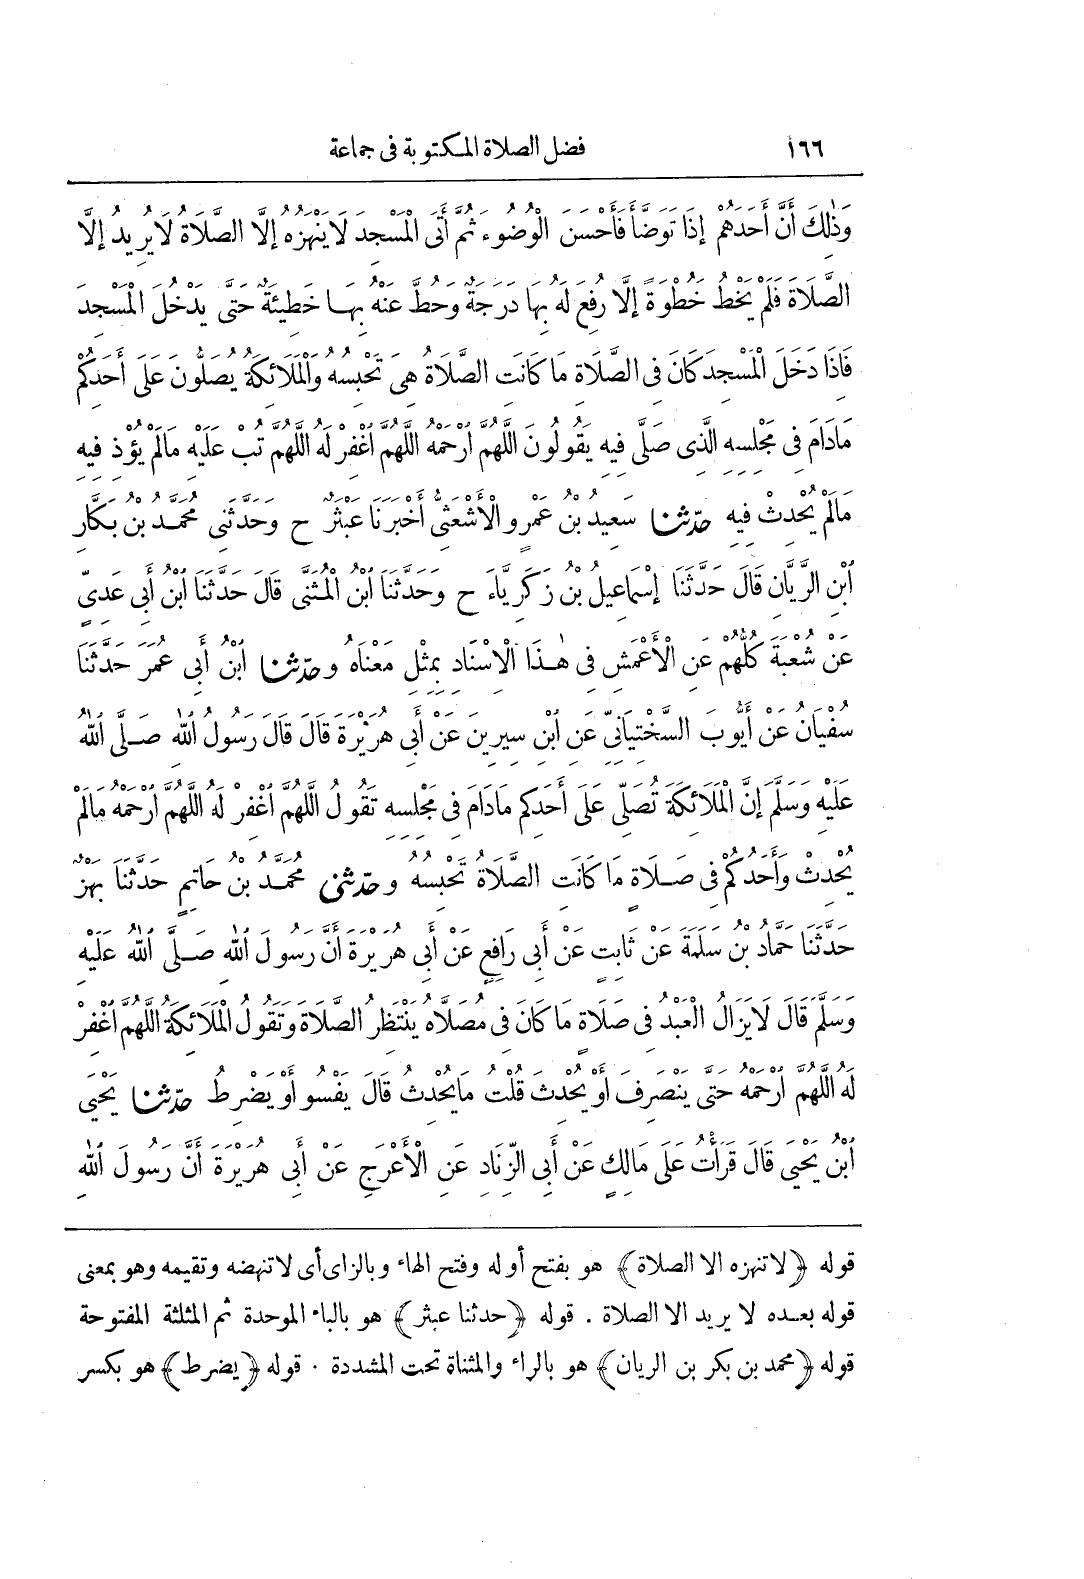 ١٦٦ فضل الصلاة المكتوبة فى جماعة
وَذٰلِكَ أَنَّ أَحَدَهُمْ إِذَا تَوَضَّأَ فَأَحْسَنَ الْوُضُوءَ ثُمَّ أَتَى الْمَسْجِدَ لَا يَنْهَزُهُ إِلَّا الصَّلَاةُ لَا يُرِيدُ إِلَّا
الصَّلَاةَ فَلَمْ يَخْطُ خَطْوَةً إِلَّا رُفِعَ لَهُ بِهَا دَرَجَةٌ وَحُطَّ عَنْهُ بِهَا خَطِيئَةٌ حَتَّى يَدْخُلَ الْمَسْجِدَ
فَإِذَا دَخَلَ الْمَسْجِدَ كَانَ فِى الصَّلَاةِ مَا كَانَتِ الصَّلَاةُ هِىَ تَحْبِسُهُ وَالْمَلَائِكَةُ يُصَلُّونَ عَلَى أَحَدِكُمْ
مَادَامَ فِى مَجْلِسِهِ الَّذِى صَلَّى فِيهِ يَقُولُونَ اللَّهُمَّ ارْحَمْهُ اللَّهُمَّ اغْفِرْ لَهُ اللَّهُمَّ تُبْ عَلَيْهِ مَالَمْ يُؤْذِ فِيهِ
مَالَمْ يُحْدِثْ فِيهِ حدّثنا سَعِيدُ بْنُ عَمْرٍو الْأَشْعَثِىُّ أَخْبَرَنَا عَبْثَرٌ ح وَحَدَّثَنِى مُحَمَّدُ بْنُ بَكَّارِ
ابْنِ الرَّيَّانِ قَالَ حَدَّثَنَا إِسْمَاعِيلُ بْنُ زَكَرِيَّاءَ ح وَحَدَّثَنَا ابْنُ الْمُثَنَّى قَالَ حَدَّثَنَا ابْنُ أَبِى عَدِىٍّ
عَنْ شُعْبَةَ كُلُّهُمْ عَنِ الْأَعْمَشِ فِى هٰذَا الْإِسْنَادِ بِمِثْلِ مَعْنَاهُ وحدّثنا ابْنُ أَبِى عُمَرَ حَدَّثَنَا
سُفْيَانُ عَنْ أَيُّوبَ السَّخْتِيَانِىِّ عَنِ ابْنِ سِيرِينَ عَنْ أَبِى هُرَيْرَةَ قَالَ قَالَ رَسُولُ اللّٰهِ صَلَّى اللّٰهُ
عَلَيْهِ وَسَلَّمَ إِنَّ الْمَلَائِكَةَ تُصَلِّى عَلَى أَحَدِكُمْ مَادَامَ فِى مَجْلِسِهِ تَقُولُ اللَّهُمَّ اغْفِرْ لَهُ اللَّهُمَّ ارْحَمْهُ مَالَمْ
يُحْدِثْ وَأَحَدُكُمْ فِى صَلَاةٍ مَا كَانَتِ الصَّلَاةُ تَحْبِسُهُ وحدّثنى مُحَمَّدُ بْنُ حَاتِمٍ حَدَّثَنَا بَهْزٌ
حَدَّثَنَا حَمَّادُ بْنُ سَلَمَةَ عَنْ ثَابِتٍ عَنْ أَبِى رَافِعٍ عَنْ أَبِى هُرَيْرَةَ أَنَّ رَسُولَ اللّٰهِ صَلَّى اللّٰهُ عَلَيْهِ
وَسَلَّمَ قَالَ لَا يَزَالُ الْعَبْدُ فِى صَلَاةٍ مَا كَانَ فِى مُصَلَّاهُ يَنْتَظِرُ الصَّلَاةَ وَتَقُولُ الْمَلَائِكَةُ اللَّهُمَّ اغْفِرْ
لَهُ اللَّهُمَّ ارْحَمْهُ حَتَّى يَنْصَرِفَ أَوْ يُحْدِثَ قُلْتُ مَا يُحْدِثُ قَالَ يَفْسُو أَوْ يَضْرِطُ حدّثنا يَحْيَى
ابْنُ يَحْيَى قَالَ قَرَأْتُ عَلَى مَالِكٍ عَنْ أَبِى الزِّنَادِ عَنِ الْأَعْرَجِ عَنْ أَبِى هُرَيْرَةَ أَنَّ رَسُولَ اللّٰهِ
قوله ﴿لا تنهزه الا الصلاة﴾ هو بفتح أوله وفتح الهاء وبالزاى أى لا تنهضه وتقيمه وهو بمعنى
قوله بعده لا يريد الا الصلاة . قوله ﴿حدثنا عبثر﴾ هو بالباء الموحدة ثم المثلثة المفتوحة
قوله ﴿محمد بن بكر بن الريان﴾ هو بالراء والمثناة تحت المشددة . قوله ﴿يضرط﴾ هو بكسر